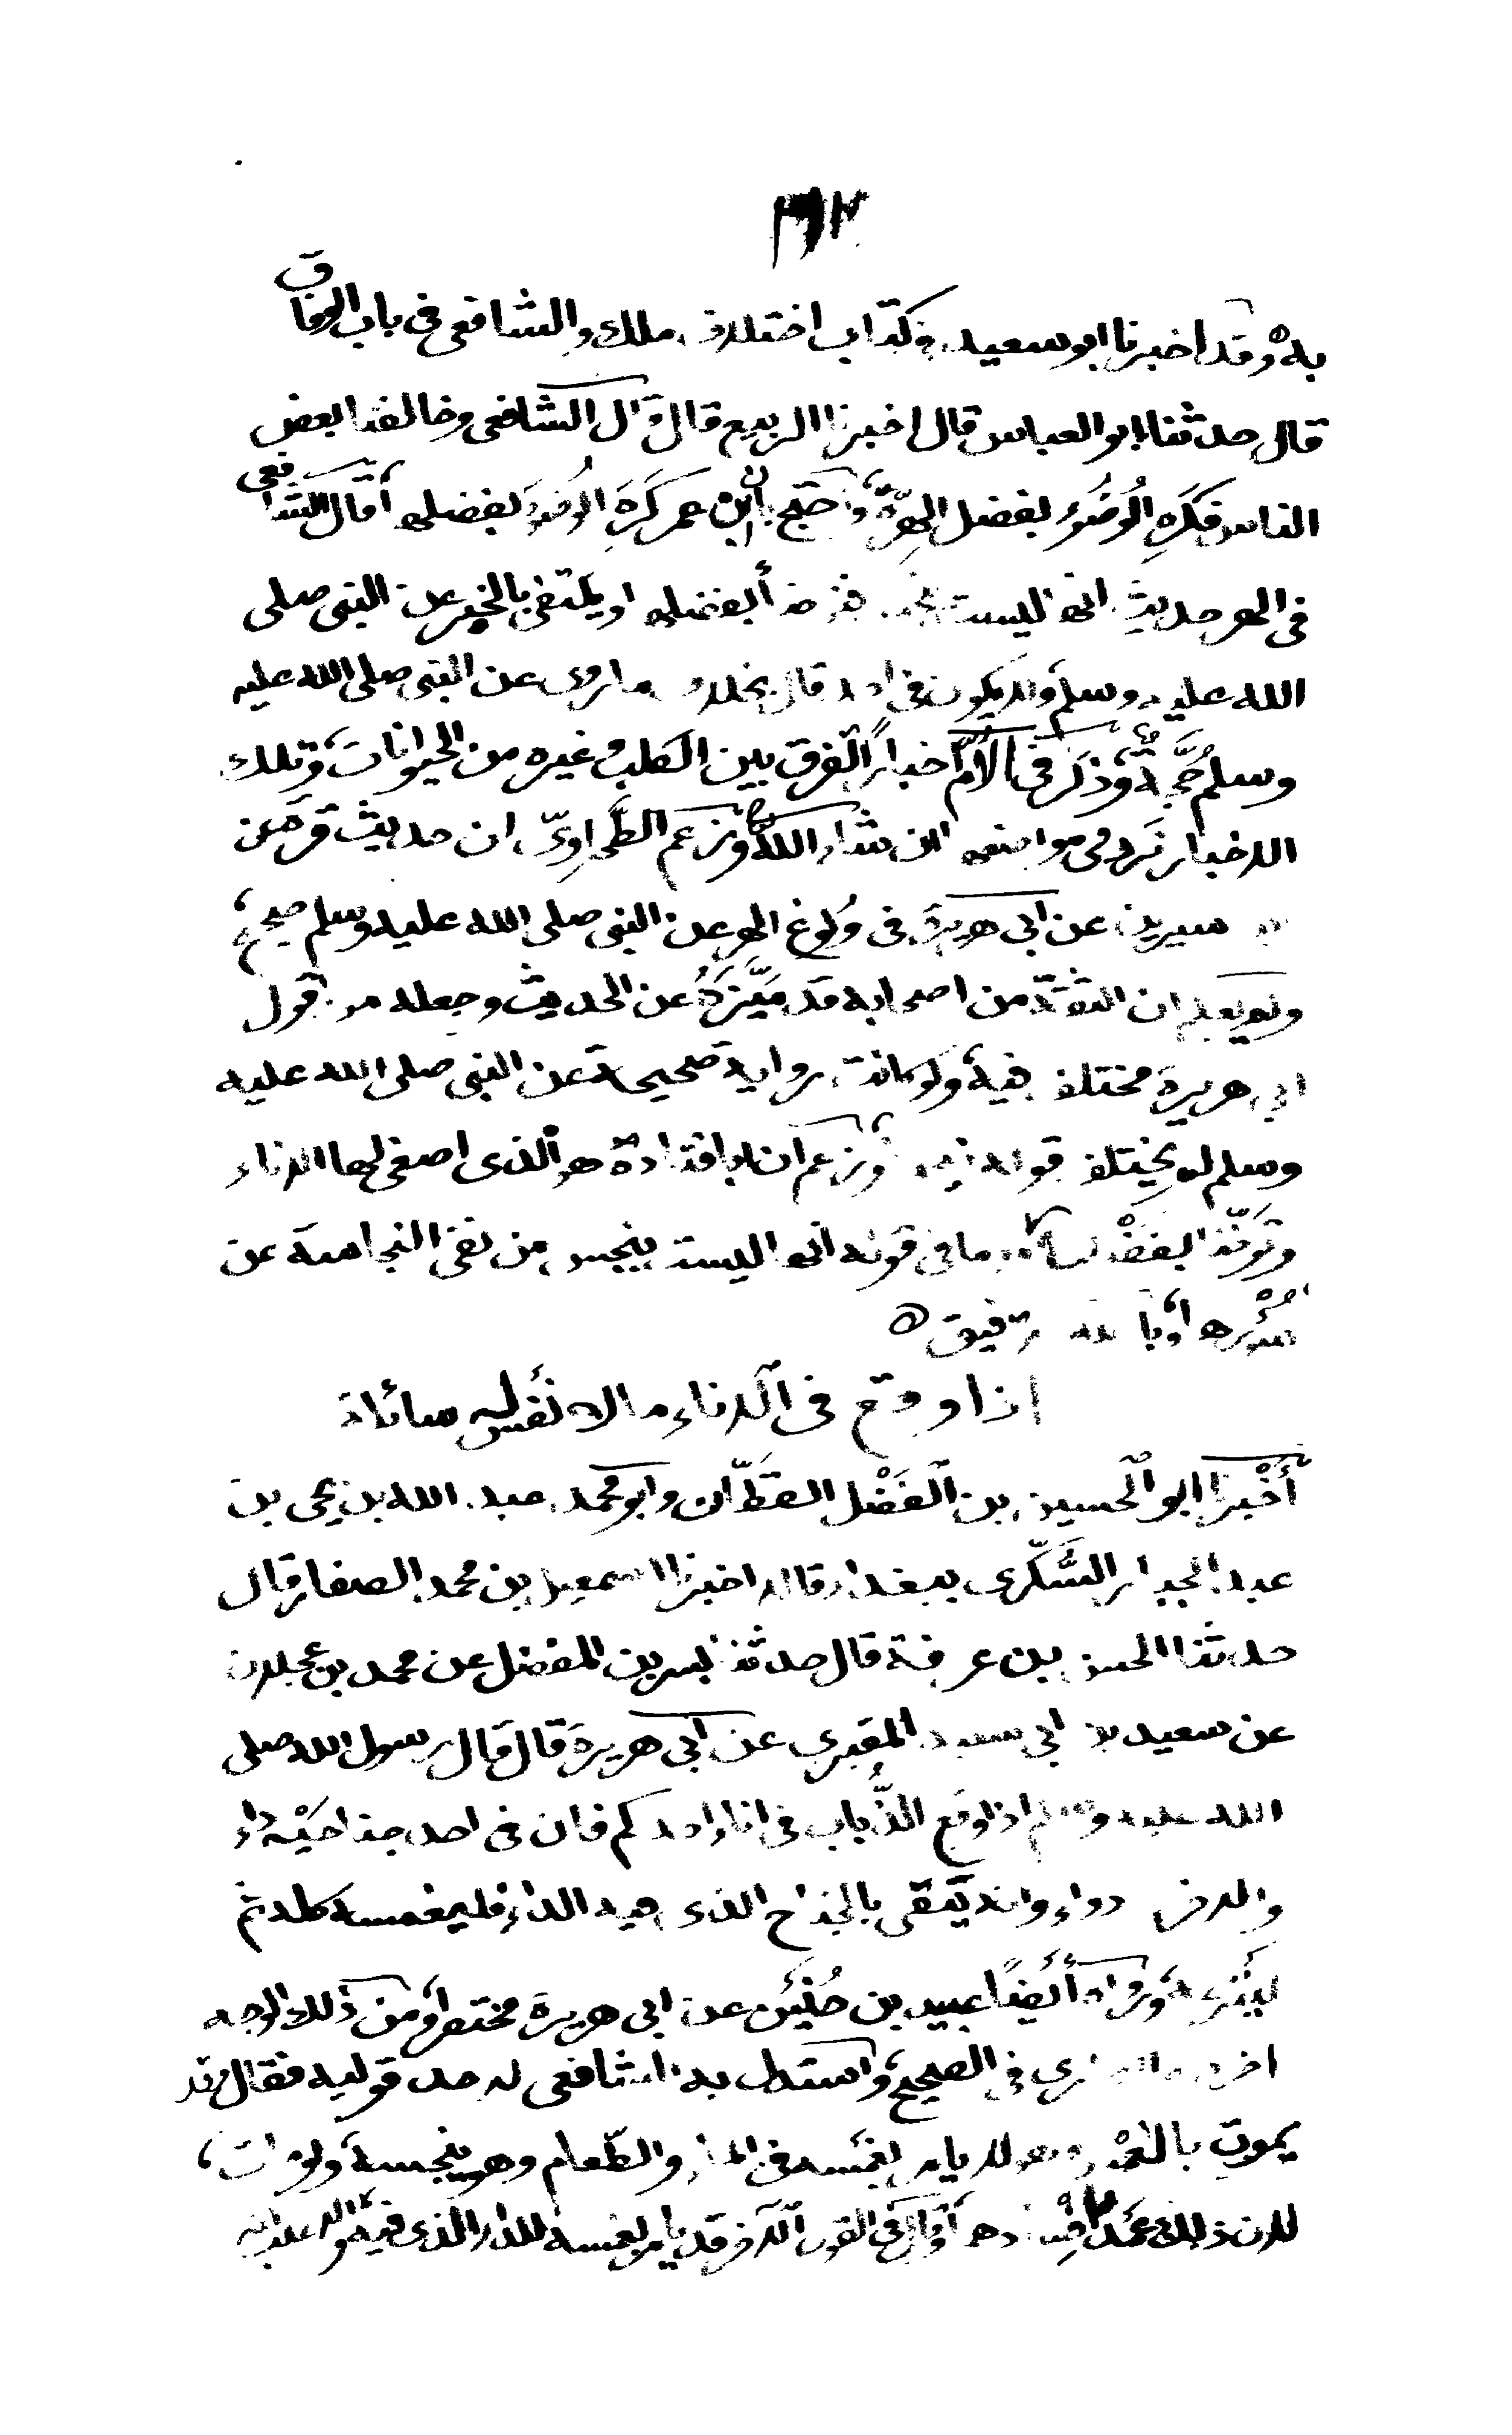 به وقد اخبرنا ابو سعيد في كتاب اختلاف ملك والشافعى فى باب الوفاق
قال حدثنا ابو العباس قال اخبرنا الربيع قال قال الشافعى وخالفنا بعض
الناس فكَرِه الوُضُوء بفضل الهِرَّة واحتج بأن ابن عمر كَرِهَ الوضوء بفضلها قال الشافعى
فى الهر حديث انها ليست بفضلها او يكتفى بالخبر عن النبى صلى
الله عليه وسلم ولا يكون فى احد قال بخلاف ما روى عن النبى صلى الله عليه
وسلم حُجَّة وذكَر فى الأمّ اخباراً الفرق بين الكلب وغيره من الحيوانات وتلك
الاخبار تَرِد فى مواضعها ان شاء الله وزعم الطَّحاوِىّ ان حديث قرة عن
سيرين عن ابى هريرة فى وُلوغ الهر عن النبى صلى الله عليه وسلم صحيح
ولم يعلم ان الثقة من اصحابه قد مَيَّزَهُ عن الحديث وجعله من قول
ابى هريرة مختلف فيه ولو كانت رواية صحيحة عن النبى صلى الله عليه
وسلم لم يختلف قوله فيه وزعم ان ابا قتادة هو الذى اصغى لها الاناء
وتوضأ بفضْلها ما فى قوله انها ليست بنجس من نفى النجاسة عن
سُؤْرها وبالله التوفيق
اذا وقع فى الاناء ما لا نَفْس له سائلة
أَخْبرنا ابو الحسين بن الفَضْل القطّان وابو محمد عبد الله بن يحيى بن
عبد الجبار السُّكّرى ببغداد قالا اخبرنا اسمعيل بن محمد الصفار قال
حدثنا الحسن بن عرفة قال حدثنا بشر بن المفضل عن محمد بن عجلان
عن سعيد بن ابى سعيد المقبرى عن ابى هريرة قال قال رسول الله صلى
الله عليه وسلم اذا وقع الذُّباب فى اناء احدكم فان فى احد جناحَيْه داء
والاخر دواء وانه يتقى بالجناح الذى فيه الداء فليغمسه كله ثم
لينْزعه ورواه أيضًا عبيد بن حُنَيْن عن ابى هريرة مختصرا ومن ذلك الوجه
اخرجه البخارى فى الصحيح واستدل به الشافعى لاحد قوليه فقال وقد
يموت بالغمس وهو لا يامر بغمسه فى الماء والطعام وهو ينجسه ولو مات
لان ذلك عَمْد افسادهما وقال فى القول الاخر قد يامر بغمسه للداء الذى فيه